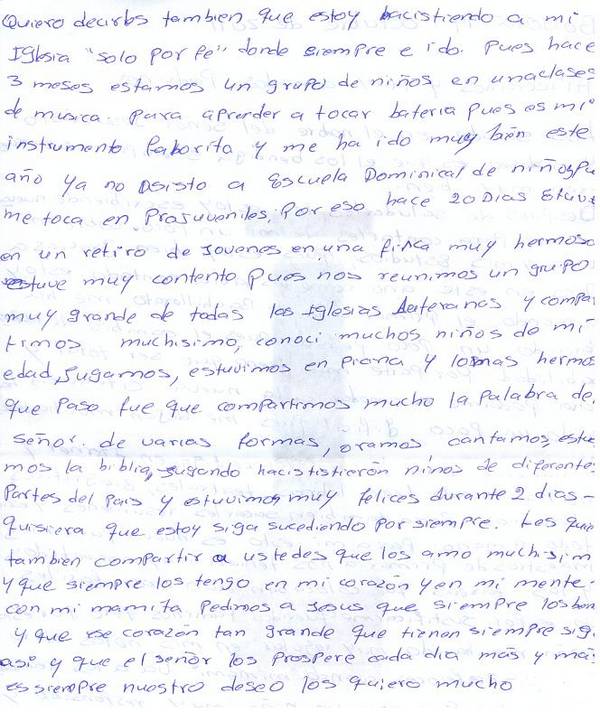 Quiero decirles tambien que estoy hacistiendo a mi
Iglesia "solo por fe" donde siempre e ido. Pues hace
3 meses estamos un grupo de niños en unaclases
de musica para aprender a tocar bateria pues es mi
instrumento faborito y me ha ido muy bien este
año ya no asisto a Escuela Dominical de niños pu
me toca en Prajuveniles, Por eso hace 20 Dias Estuv
en un retiro de Jovenes en una finca muy hermosa
estuve muy contento Pues nos reunimos un grupo
muy grande de todas las Iglesias Luteranas y compa
timos muchisimo, conoci muchos niños de mi
edad, Jugamos, estuvimos en picina y lo mas hermo
que Paso fue que compartimos mucho la Palabra de
Señor. de varias formas, oramos cantamos, estu
mos la biblia, jugando hacististierón ninos de diferente
Partes del Pais y estuvimos muy felices durante 2 dias -
quisiera que estoy siga sucediendo por siempre. Les quie
tambien compartir a ustedes que los amo muchisim
y que siempre los tengo en mi corazón y en mi mente.
con mi mamita Pedimos a Jesus que siempre los ben
y que ese corazón tan grande que tienen siempre sig
asi y que el señor los prospere cada dia más y má
es siempre nuestro deseo los quiero mucho